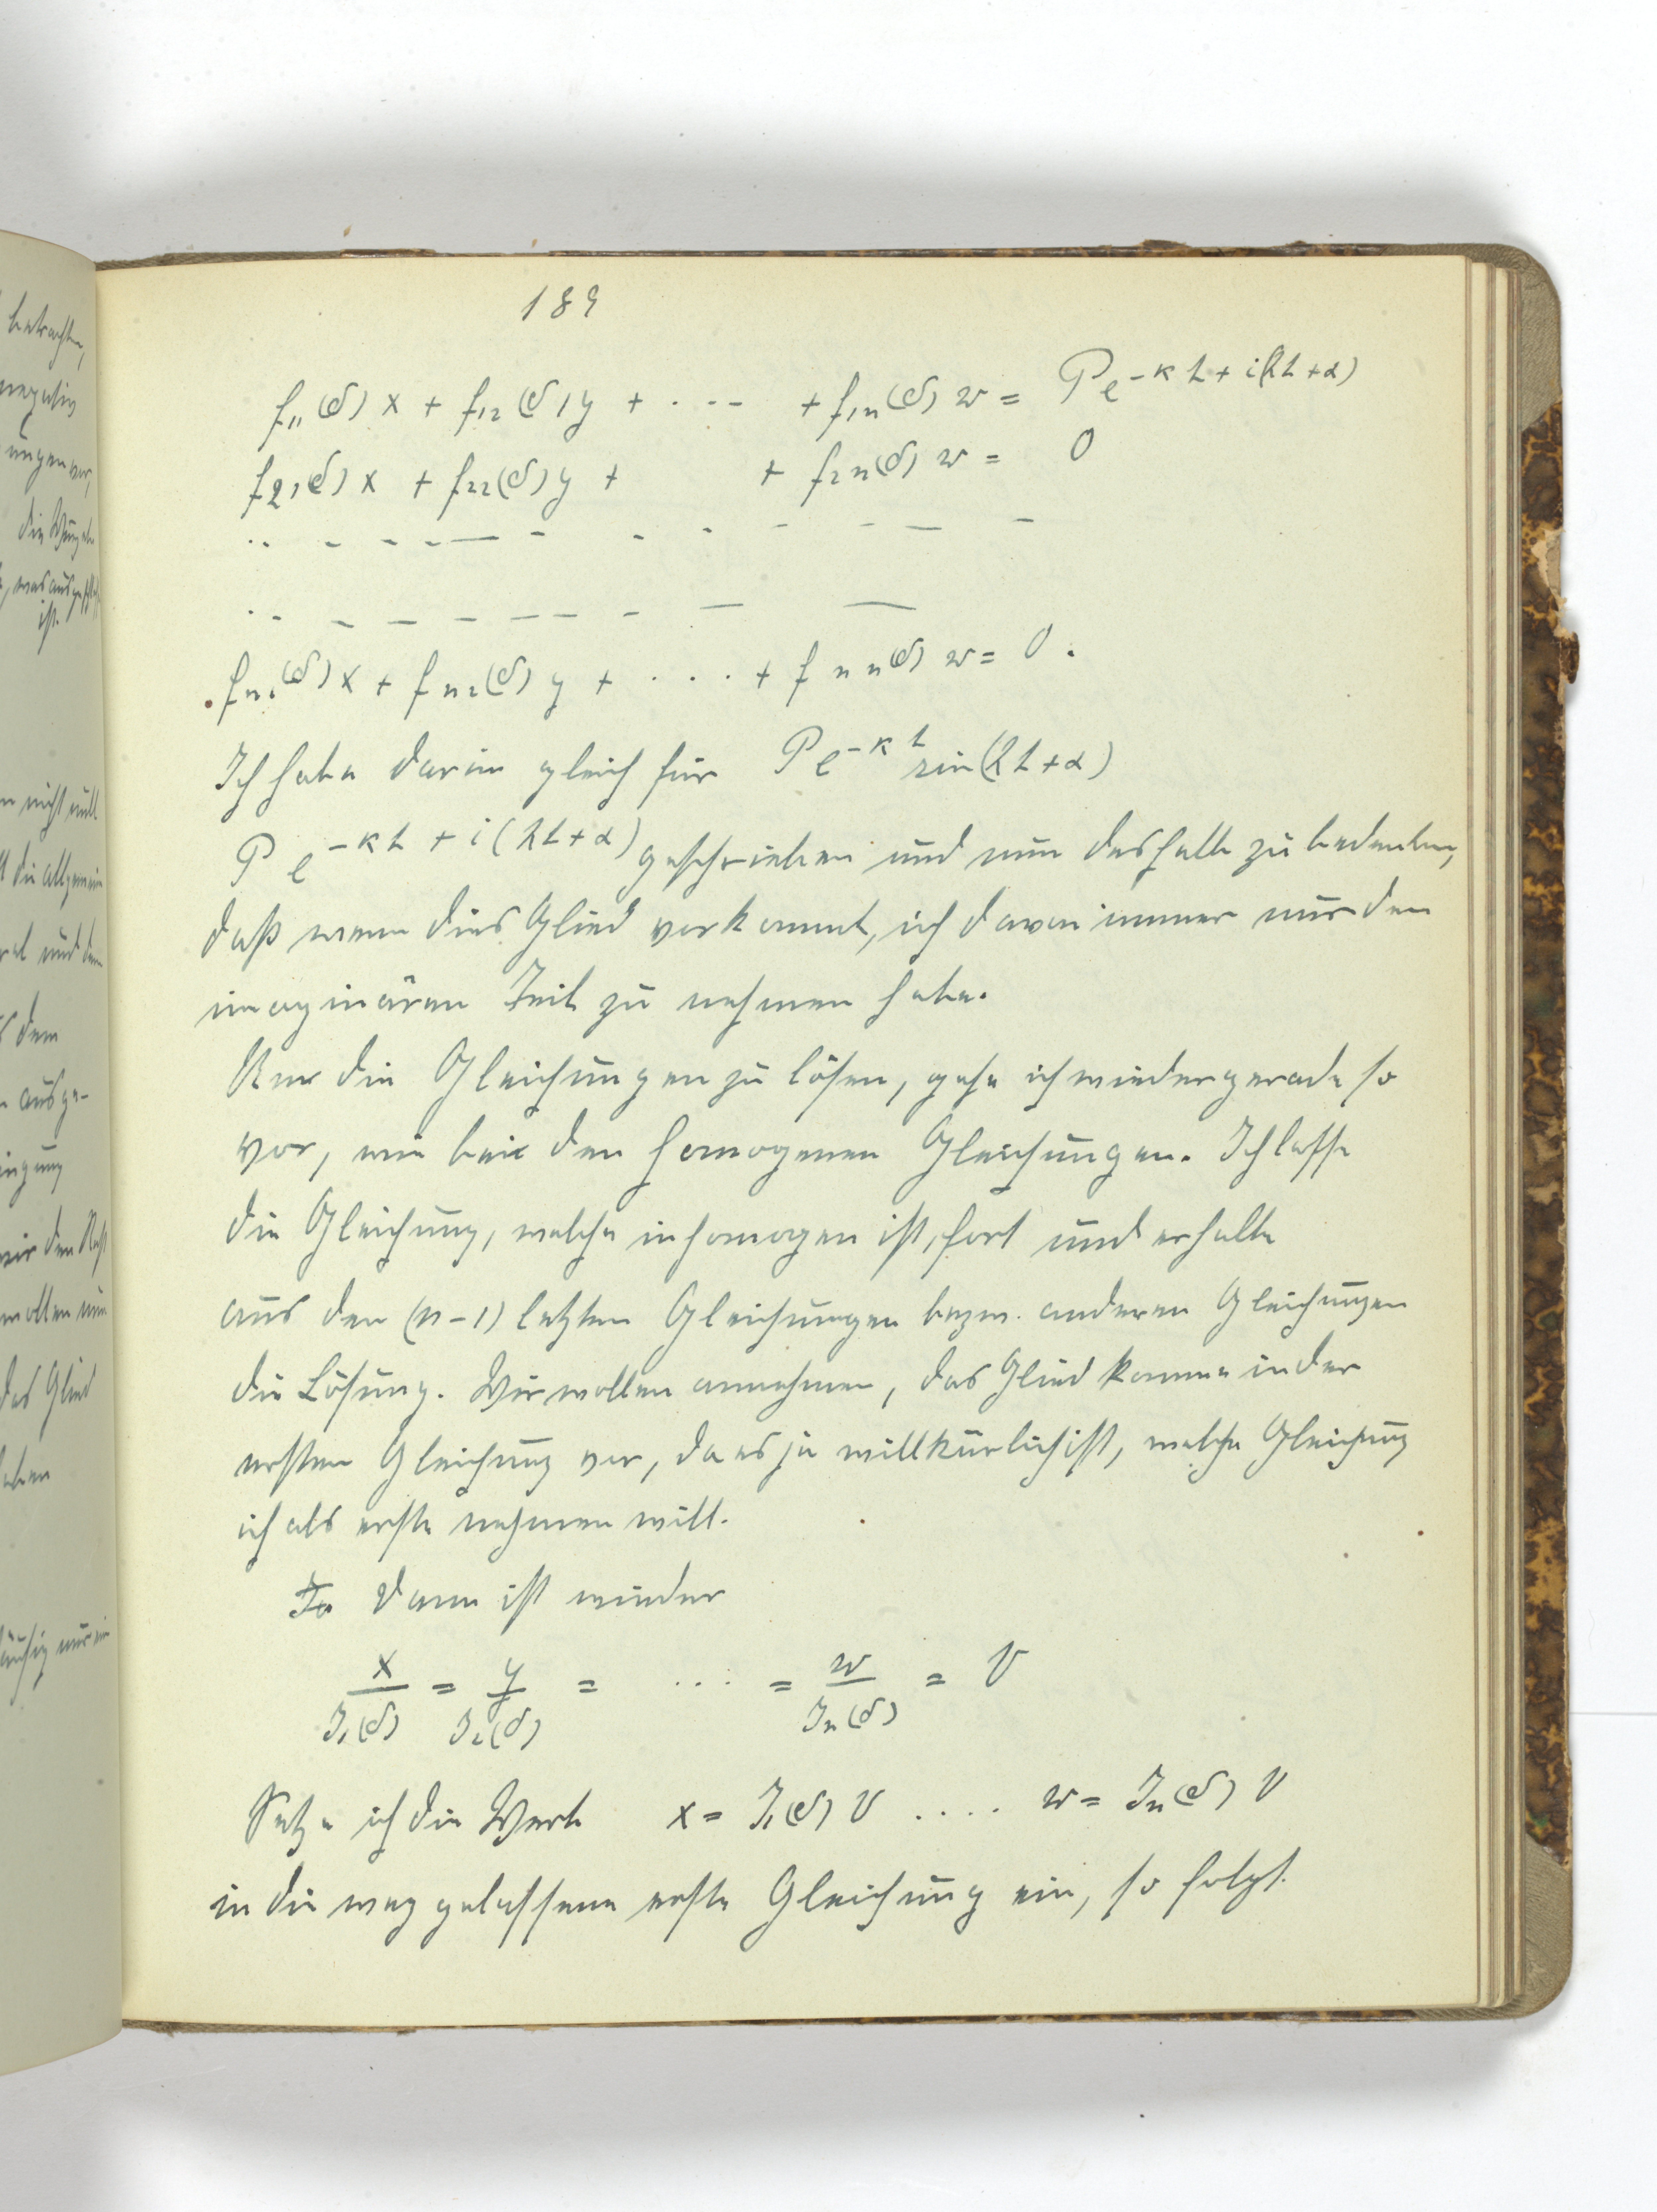 189
f₁₁(δ) x + f₁₂(δ) y + . . - - + f₁ₙ(δ) w = P e^{-κt + i(λt+α)}
f₂₁(δ) x + f₂₂(δ) y + + f₂ₙ(δ) w = 0
fₙ₁(δ) x + fₙ₂(δ) y + . . . . + fₙₙ(δ) w = 0 .
Ich habe darin gleich für P e^{-κt} sin(λt+α)
P e^{-κt + i(λt+α)} geschrieben und nun deshalb zu bedenken,
daß wenn dies Glied vorkommt, ich davon immer nur den
imaginären Teil zu nehmen habe.
Um die Gleichungen zu lösen, gehe ich wieder gerade so
vor, wie bei den homogenen Gleichungen. Ich lasse
die Gleichung, welche inhomogen ist, fort und erhalte
aus den (n-1) letzten Gleichungen bezw. anderen Gleichungen
die Lösung. Wir wollen annehmen, das Glied komme in der
ersten Gleichung vor, da es ja willkürlich ist, welche Gleichung
ich als erste nehmen will.
Dann ist wieder
x/J₁(δ) = y/J₂(δ) = . . . . = w/Jₙ(δ) = V
Setze ich die Werte x = J₁(δ) V . . . . w = Jₙ(δ) V
in die weggelassene erste Gleichung ein, so folgt.